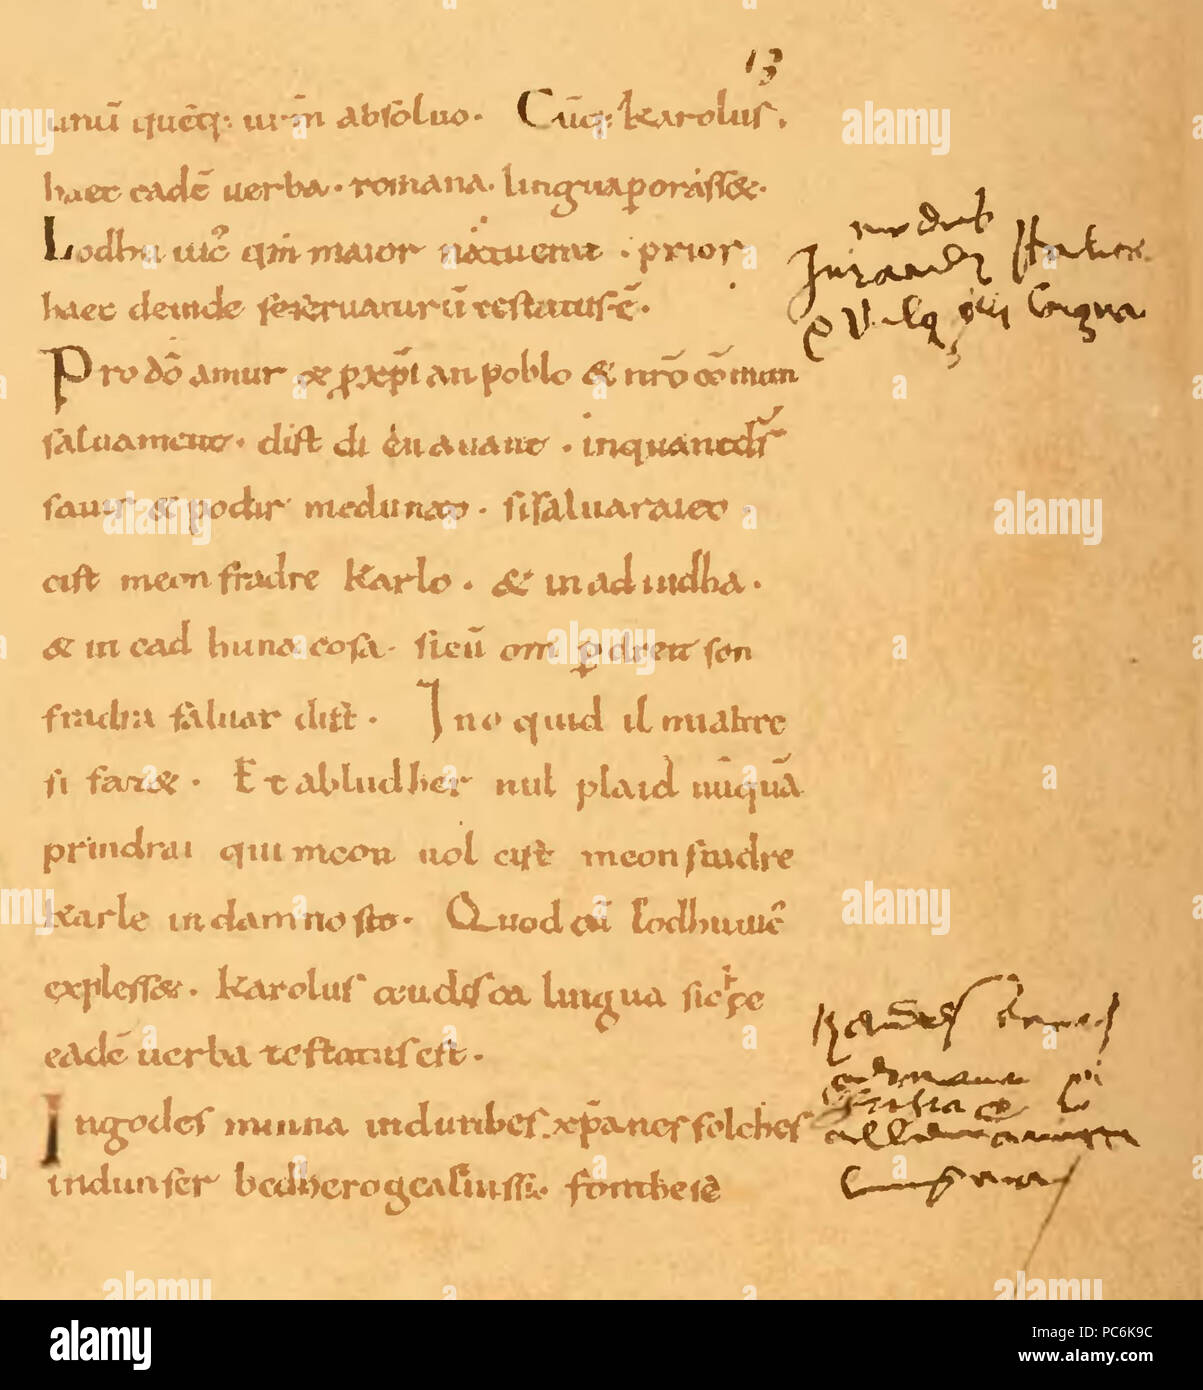 13
unū quēq; urm̄ absoluo. Cūq; karolus.
haec eadē uerba. romana. lingua ꝑorasset.
Lodhuuic̄ qm̄ maior natu erat. prior
haec deinde se seruaturū testatus ē.
Pro dō amur & ꝓ xp̄ian poblo & nrō cōmun
saluament. dist di en auant. inquantds̄
sauir & podir medunat. sisaluaraieo
cist meon fradre karlo. & in adiudha.
& in cad huna cosa. sicū om ꝑ dreit son
fradra saluar dist. Ino quid il mi altre
si fazet. Et abludher nul plaid nūquā
prindrai qui meon uol cist meon fradre
karle in damno sit. Quod cū Lodhuuic̄
explesset. karolus teudisca lingua sic se
eadē uerba testatus est.
In godes minna induthes xp̄anes folches
ind unser bedhero gealtnissi. fonthese